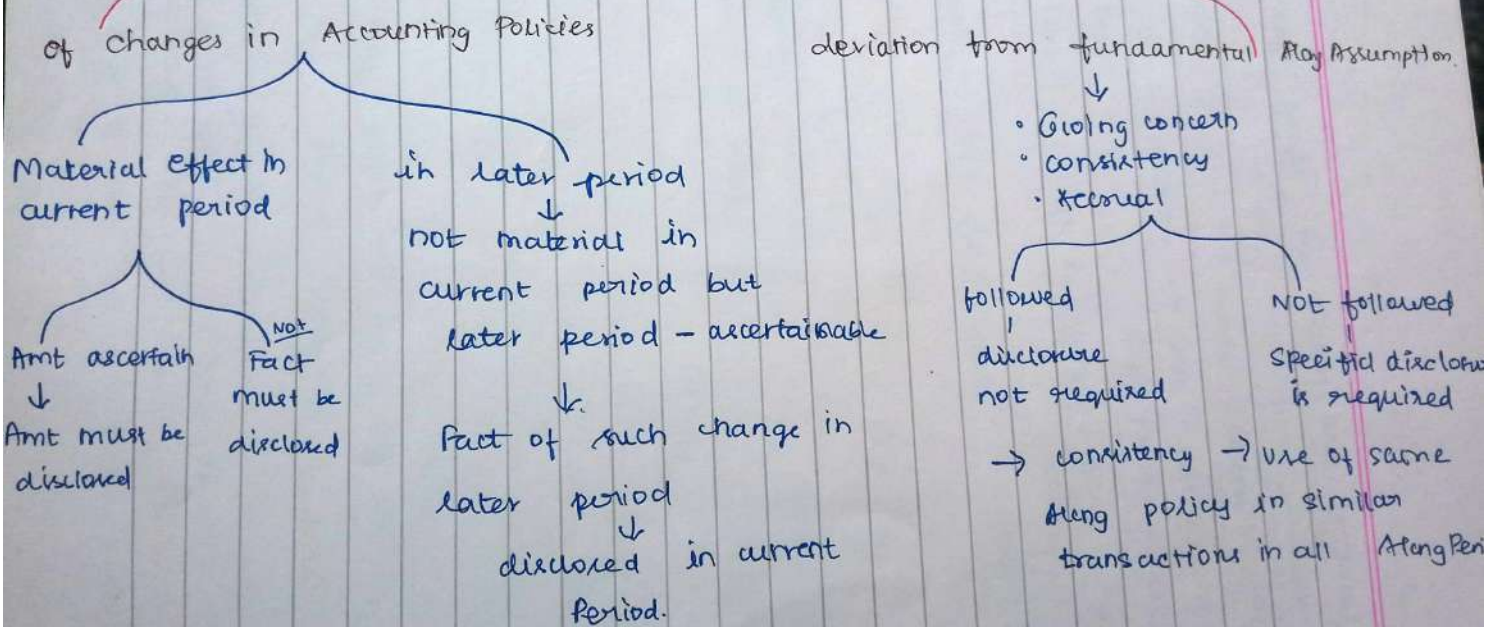 of changes in Accounting Policies
Material effect in
current period
Amt ascertain
Amt must be
disclosed
Not
Fact
must be
disclosed
in later period
not material in
current period but
later period - ascertainable
Fact of such change in
later period
disclosed in current
Period.
deviation from fundamental Assumption.
• Going concern
• consistency
• Accrual
followed
disclosure
not required
NOT followed
specific disclosu
is required
→ consistency → use of same
policy in similar
transactions in all